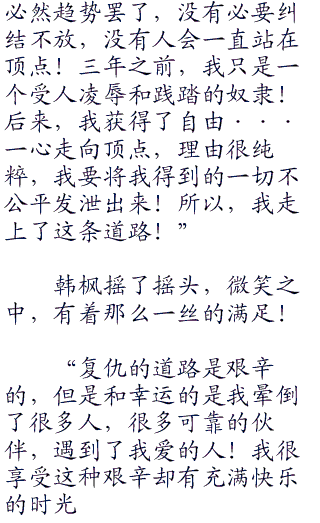 必然趋势罢了，没有必要纠
结不放，没有人会一直站在
顶点！三年之前，我只是一
个受人凌辱和践踏的奴隶！
后来，我获得了自由···
一心走向顶点，理由很纯
粹，我要将我得到的一切不
公平发泄出来！所以，我走
上了这条道路！”
韩枫摇了摇头，微笑之
中，有着那么一丝的满足！
“复仇的道路是艰辛
的，但是和幸运的是我晕倒
了很多人，很多可靠的伙
伴，遇到了我爱的人！我很
享受这种艰辛却有充满快乐
的时光